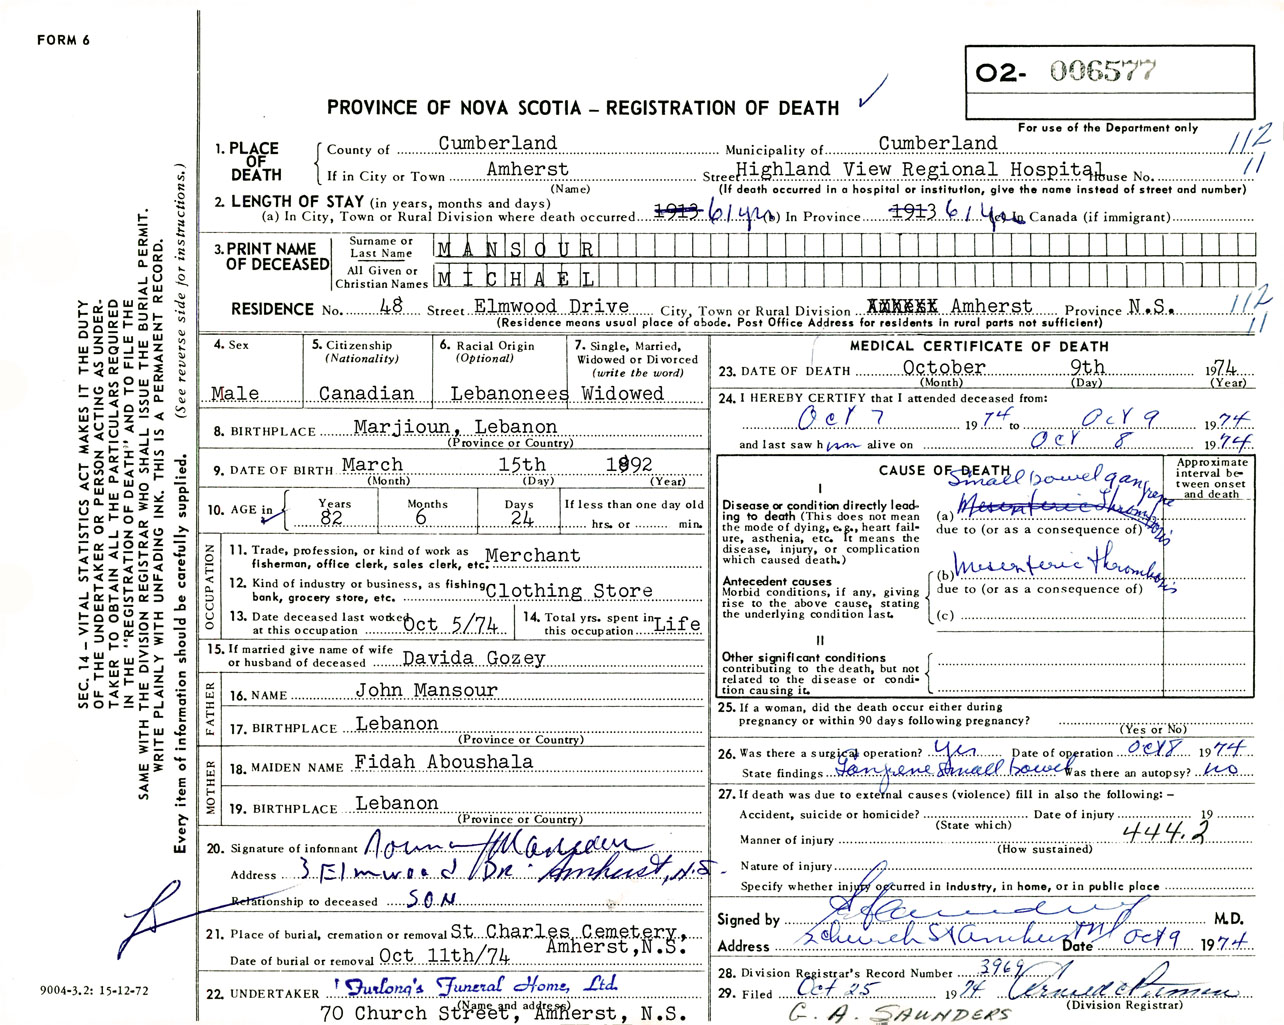 FORM 6
O2- 006577
PROVINCE OF NOVA SCOTIA – REGISTRATION OF DEATH
For use of the Department only
1. PLACE OF DEATH
County of Cumberland Municipality of Cumberland 112
If in City or Town Amherst Street Highland View Regional Hospital House No. 11
(Name) (If death occurred in a hospital or institution, give the name instead of street and number)
2. LENGTH OF STAY (in years, months and days)
(a) In City, Town or Rural Division where death occurred 1913 61 yrs (b) In Province 1913 61 yrs (c) In Canada (if immigrant)
3. PRINT NAME OF DECEASED
Surname or Last Name MANSOUR
All Given or Christian Names MICHAEL
RESIDENCE No. 48 Street Elmwood Drive City, Town or Rural Division Amherst Province N.S. 112
(Residence means usual place of abode. Post Office Address for residents in rural parts not sufficient) 11
4. Sex Male
5. Citizenship (Nationality) Canadian
6. Racial Origin (Optional) Lebanonees
7. Single, Married, Widowed or Divorced (write the word) Widowed
8. BIRTHPLACE Marjioun, Lebanon
(Province or Country)
9. DATE OF BIRTH March 15th 1892
(Month) (Day) (Year)
10. AGE in Years 82 Months 6 Days 24 If less than one day old hrs. or min.
OCCUPATION
11. Trade, profession, or kind of work as fisherman, office clerk, sales clerk, etc. Merchant
12. Kind of industry or business, as fishing, bank, grocery store, etc. Clothing Store
13. Date deceased last worked at this occupation Oct 5/74
14. Total yrs. spent in this occupation Life
15. If married give name of wife or husband of deceased Davida Gozey
FATHER
16. NAME John Mansour
17. BIRTHPLACE Lebanon
(Province or Country)
MOTHER
18. MAIDEN NAME Fidah Aboushala
19. BIRTHPLACE Lebanon
(Province or Country)
20. Signature of informant
Address 3 Elmwood Dr. Amherst, N.S.
Relationship to deceased SON
21. Place of burial, cremation or removal St Charles Cemetery, Amherst, N.S.
Date of burial or removal Oct 11th/74
22. UNDERTAKER Furlong's Funeral Home, Ltd.
(Name and address)
70 Church Street, Amherst, N.S.
MEDICAL CERTIFICATE OF DEATH
23. DATE OF DEATH October 9th 1974
(Month) (Day) (Year)
24. I HEREBY CERTIFY that I attended deceased from:
Oct 7 1974 to Oct 9 1974
and last saw him alive on Oct 8 1974
CAUSE OF DEATH
Approximate interval between onset and death
I
Disease or condition directly leading to death (This does not mean the mode of dying, e.g., heart failure, asthenia, etc. It means the disease, injury, or complication which caused death.)
Small bowel gangrene
(a) Mesenteric Thrombosis
due to (or as a consequence of)
Antecedent causes
Morbid conditions, if any, giving rise to the above cause, stating the underlying condition last.
(b) Mesenteric thrombosis
due to (or as a consequence of)
(c)
II
Other significant conditions contributing to the death, but not related to the disease or condition causing it.
25. If a woman, did the death occur either during pregnancy or within 90 days following pregnancy?
(Yes or No)
26. Was there a surgical operation? Yes Date of operation Oct 8 1974
State findings Gangrene Small bowel Was there an autopsy? no
27. If death was due to external causes (violence) fill in also the following: –
Accident, suicide or homicide? Date of injury 19
(State which)
Manner of injury 444.2
(How sustained)
Nature of injury
Specify whether injury occurred in Industry, in home, or in public place
Signed by M.D.
Address Church St Amherst Date Oct 9 1974
28. Division Registrar's Record Number 3969
29. Filed Oct 25 1974
(Division Registrar)
G. A. SAUNDERS
SEC. 14 – VITAL STATISTICS ACT MAKES IT THE DUTY
OF THE UNDERTAKER OR PERSON ACTING AS UNDER-
TAKER TO OBTAIN ALL THE PARTICULARS REQUIRED
IN THE "REGISTRATION OF DEATH" AND TO FILE THE
SAME WITH THE DIVISION REGISTRAR WHO SHALL ISSUE THE BURIAL PERMIT.
WRITE PLAINLY WITH UNFADING INK. THIS IS A PERMANENT RECORD.
Every item of information should be carefully supplied. (See reverse side for instructions.)
9004-3.2: 15-12-72